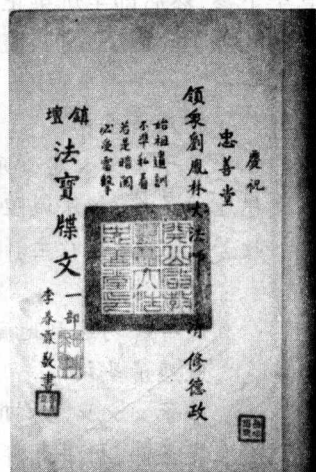 慶祝
忠善堂
領眾劉鳳林大法下 清修德政
始祖遺訓
不準私看
若是暗閱
必受雷擊
鎮壇
法寶牒文一部
李春霖敬書